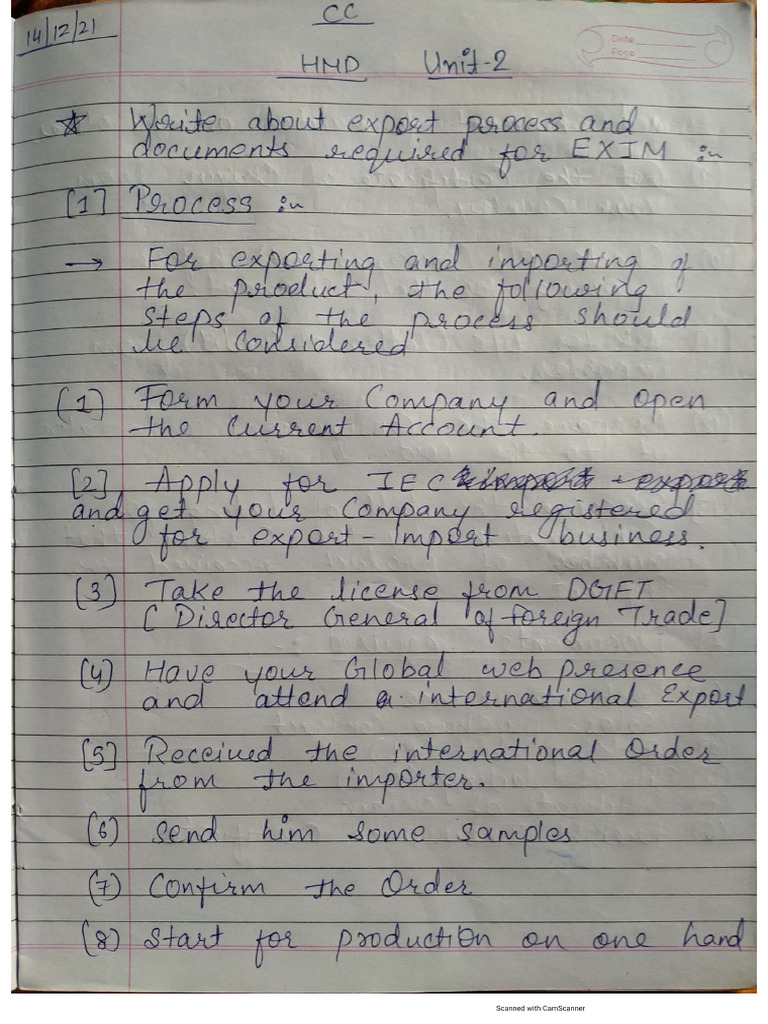 14/12/21
CC
Date
Page
HMD Unit-2
☆ Write about export process and
documents required for EXIM :~
[1] Process :~
→ For exporting and importing of
the product, the following
steps of the process should
be considered
(1) Form your Company and open
the current Account.
[2] Apply for IEC
and get your Company registered
for export-import business.
(3) Take the license from DGFT
[Director General of foreign Trade]
(4) Have your Global web presence
and attend a international Export
[5] Received the international Order
from the importer.
(6) Send him some samples
(7) Confirm the Order
(8) Start for production on one hand
Scanned with CamScanner